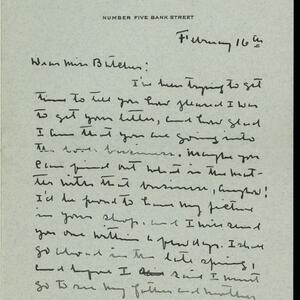 NUMBER FIVE BANK STREET
February 16th
Dear Miss Butcher:
I've been trying to get
time to tell you how pleased I was
to get your letter, and how glad
I am that you are going into
the book business. Maybe you
can find out what is the mat-
ter with that business, anyhow!
I'd be proud to have my picture
in your shop, and I will send
you one within a few days. I shall
go abroad in the late spring,
and before I sail I must
go to see my father and mother